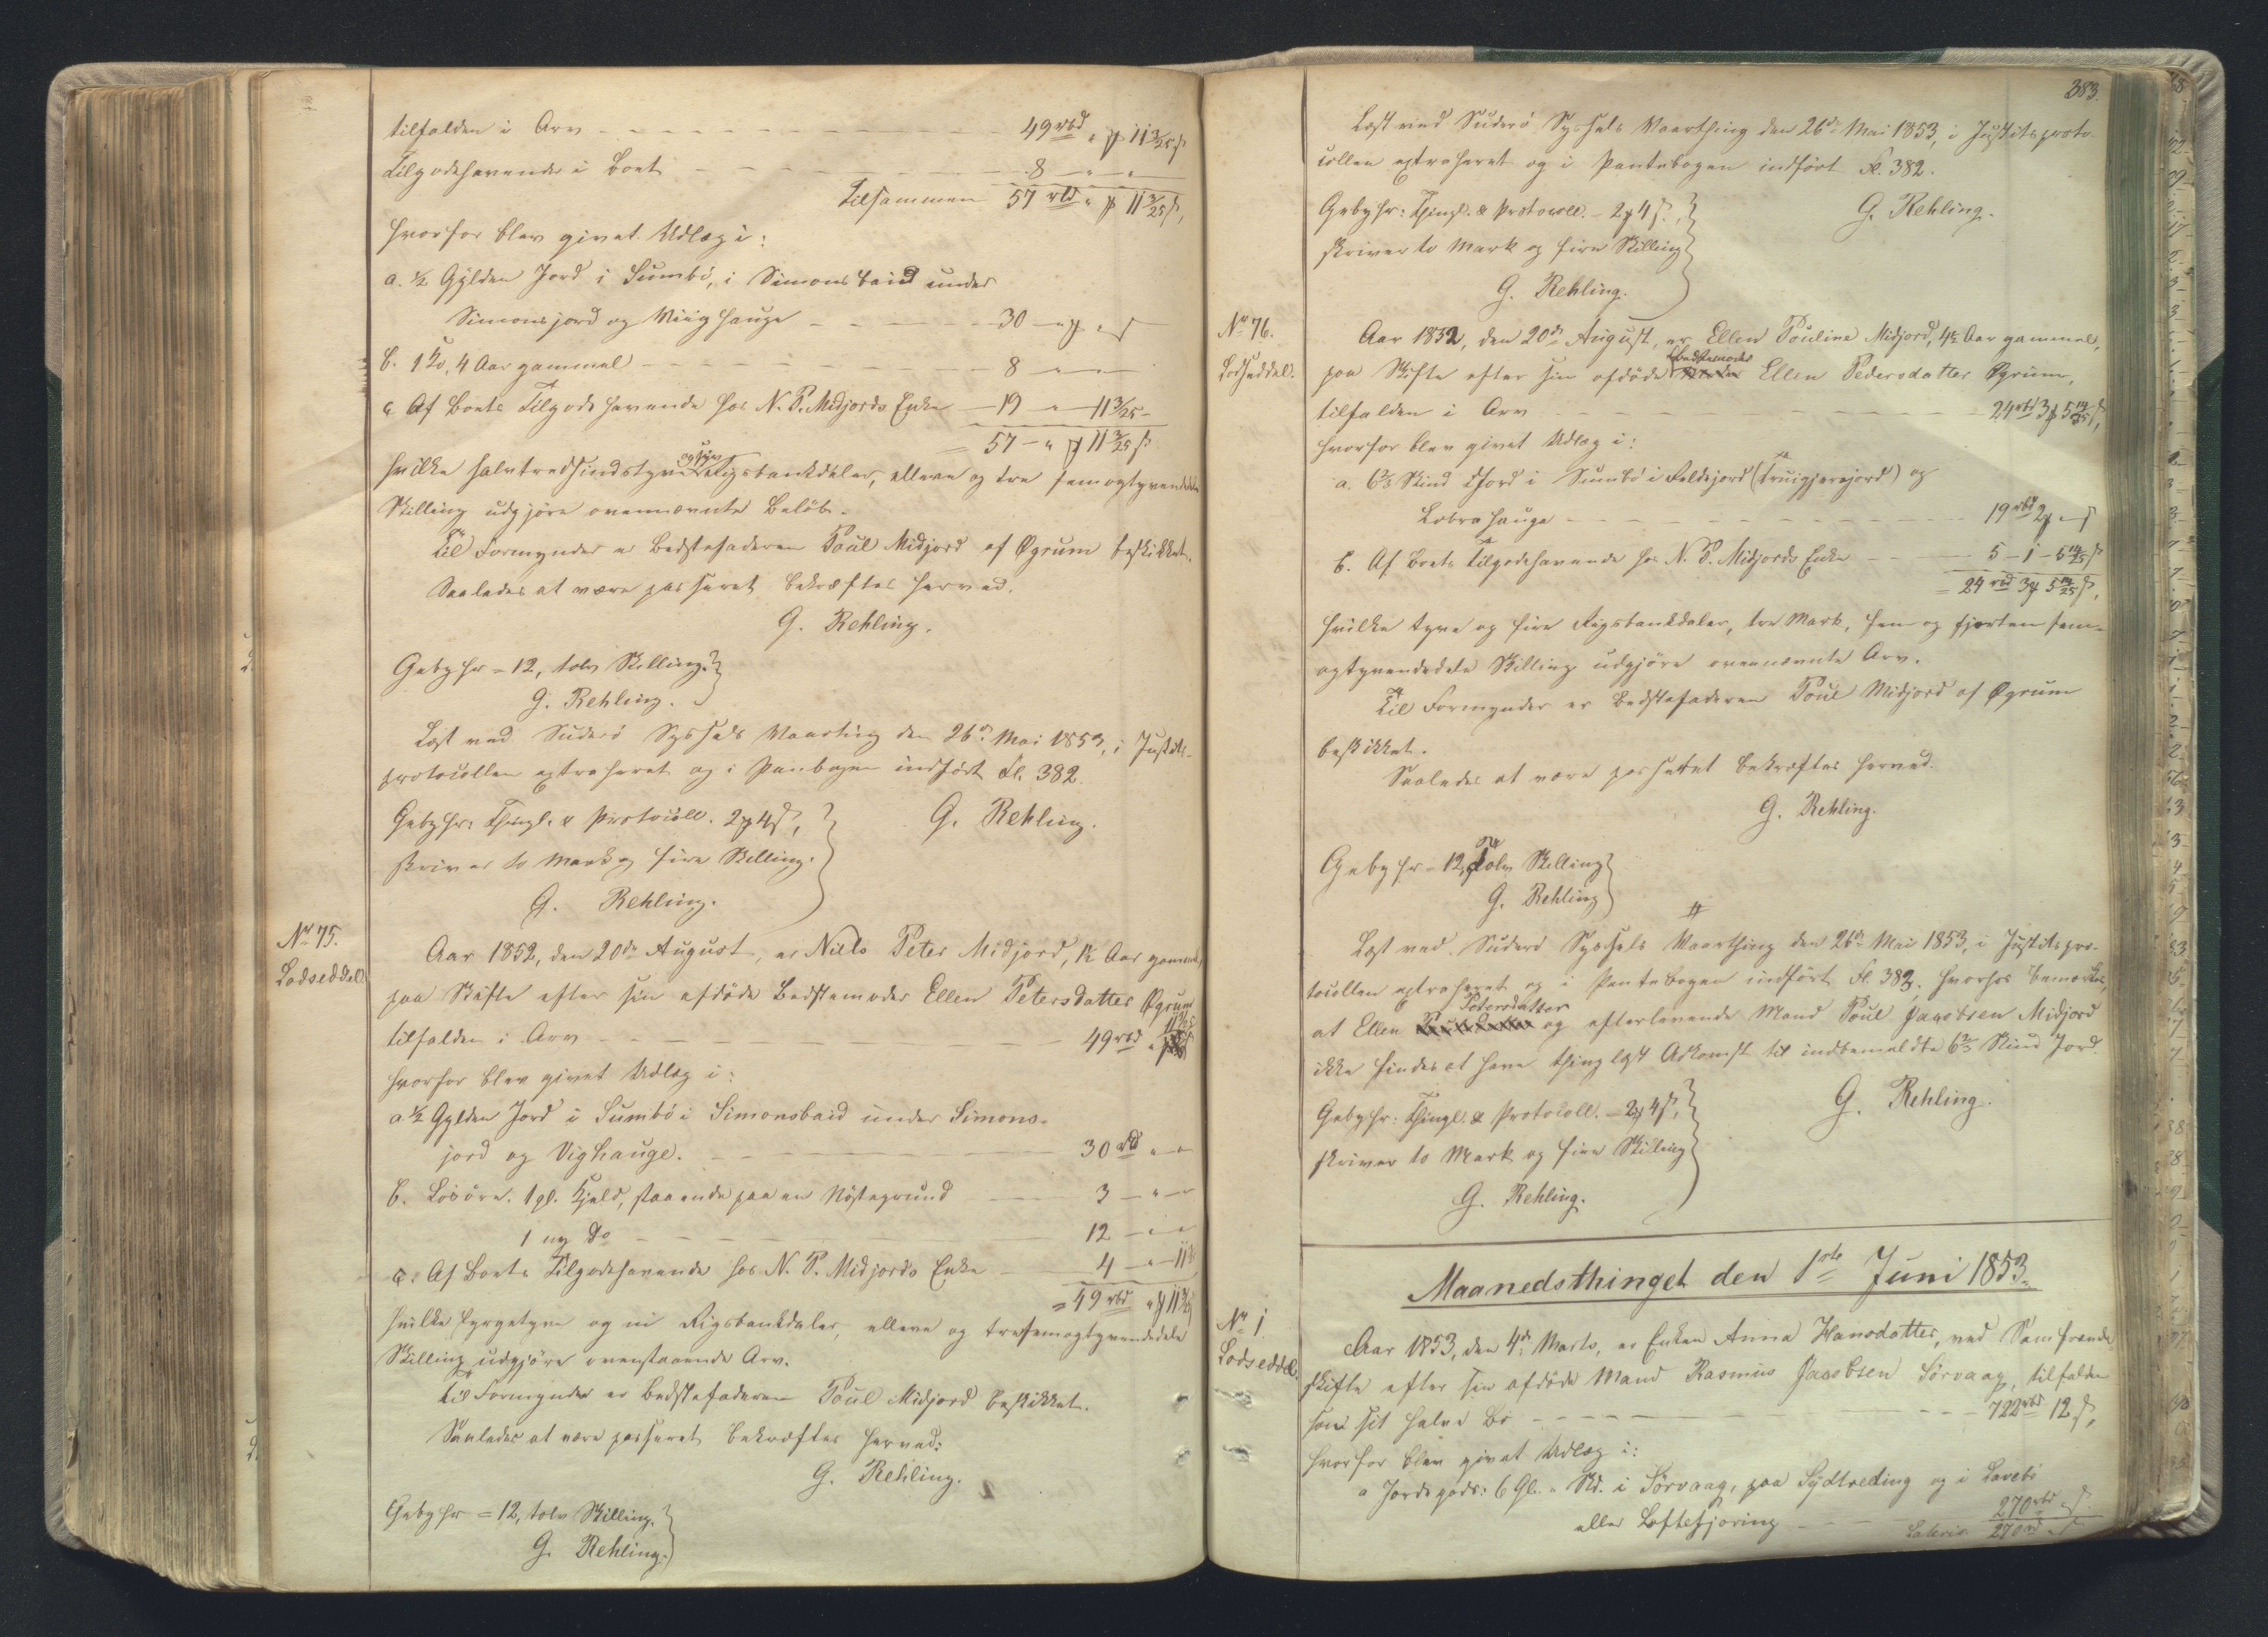 tilfalden i Arv - - - 49 rbd " ß 11 3/25 ß
Tilgodehavende i Boet - - - 8 - " - "
Tilsammen 57 rbd " ß 11 3/25 ß,
hvorfor blev givet Udlæg i:
a. ½ Gylden Jord i Sumbö, i Simonsbaid under
Simonsjord og Viighauge - - - 30 - " ß " ß
b. 1 Ko, 4 Aar gammel - - - 8 - " - "
c. Af Boets Tilgodehavende hos N. P. Midjords Enke - 19 - " - 11 3/25 -
= 57 - " ß 11 3/25 ß
hvilke halvtredsindstyve og syv Rigsbankdaler, elleve og tre femogtyvendedele
Skilling udgjöre ovennævnte Belöb.
Til Formynder er Bedstefaderen Poul Midjord af Øgrum beskikket.
Saaledes at være passeret bekræftes herved.
G. Rehling.
Gebyhr = 12, tolv Skilling.
G. Rehling.
Læst ved Suderö Syssels Vaarting den 26de Mai 1853, i Justits-
protocollen extraheret og i Panbogen indfört Fl. 382.
Gebyhr: Thingl. & Protocoll. 2 ß 4 ß,
G. Rehling.
skriver to Mark og fire Skilling.
G. Rehling.
No 75.
Lodseddel
Aar 1852, den 20de August, er Niels Peter Midjord, 1½ Aar gammel,
paa Skifte efter sin afdöde Bedstemoder Ellen Petersdatter Øgrum
tilfalden i Arv - - - 49 rbd " 11 3/25
hvorfor blev givet Udlæg i:
a. ½ Gylden Jord i Sumbö i Simonsbaid under Simons-
jord og Vighauge. - - - 30 rbd " "
b. Lösöre. 1 gl. Hjeld, staaende paa en Nöstegrund - 3 - " - "
1 ny Do - - - 12 - " - "
c. Af Boets Tilgodehavende hos N. P. Midjords Enke - 4 - " - 11
= 49 rbd " ß 11 3/25
hvilke fyrgetyve og ni Rigsbankdaler, elleve og trefemogtyvendedele
Skilling udgjöre ovenstaaende Arv.
Til Formynder er Bedstefaderen Poul Midjord beskikket.
Saaledes at være passeret bekræftes herved:
G. Rehling.
Gebyhr = 12, tolv Skilling.
G. Rehling.
383.
Læst ved Suderö Syssels Vaarthing den 26de Mai 1853, i Justitsproto-
collen extraheret og i Pantebogen indfört Fl. 382.
Gebyhr: Thingl. & Protocoll. - 2 ß 4 ß,
G. Rehling.
skriver to Mark og fire Skilling
G. Rehling.
No 76.
Lodseddel.
Aar 1852, den 20de August, er Ellen Pouline Midjord, 4½ Aar gammel,
paa Skifte efter sin afdöde Bedstemoder Ellen Pedersdatter Øgrum,
tilfalden i Arv - - - 24 rbd 3 ß 5 14/25 ß,
hvorfor blev givet Udlæg i:
a. 6 2/3 Skind Jord i Sumbö i Feldsjord (Truigjerejord) og
Lobrahauge - - - 19 rbd 2 ß " ß
b. Af Boets Tilgodehavende hos N. P. Midjords Enke - 5 - 1 - 5 14/25 ß
= 24 rbd 3 ß 5 14/25 ß,
hvilke tyve og fire Rigsbankdaler, tre Mark, fem og fjorten fem-
ogtyvendedele Skilling udgjöre ovennævnte Arv.
Til Formynder er Bedstefaderen Poul Midjord af Øgrum
beskikket.
Saaledes at være passeret bekræftes herved.
G. Rehling.
Gebyhr - 12, Tolv Skilling
G. Rehling
Læst ved Suderö Syssels Vaarthing den 26de Mai 1853, i Justitspro-
tocollen extraheret og i Pantebogen indfört Fl. 382, hvorhos bemærkes,
at Ellen Petersdatter og efterlevende Mand Poul Jacobsen Midjord
ikke findes at have thinglæst Adkomst til indbemeldte 6 2/3 Skind Jord.
Gebyhr: Thingl. & Protocoll. - 2 ß 4 ß,
G. Rehling.
skriver to Mark og fire Skilling
G. Rehling.
Maanedsthinget den 1ste Juni 1853.
No 1
Lodseddel.
Aar 1853, den 4de Marts, er Enken Anna Hansdatter, ved Samfrænde-
skifte efter sin afdöde Mand Rasmus Jacobsen Sörvaag, tilfalden
som sit halve Bo - - - 722 rbd 12 ß,
hvorfor blev givet Udlæg i:
a Jordegods: 6 Gl. " Sk. i Sörvaag, paa Sydtreding og i Lavebö
eller Loftesjöring - - 270 rbd " ß
Lateris 270 rbd " ß